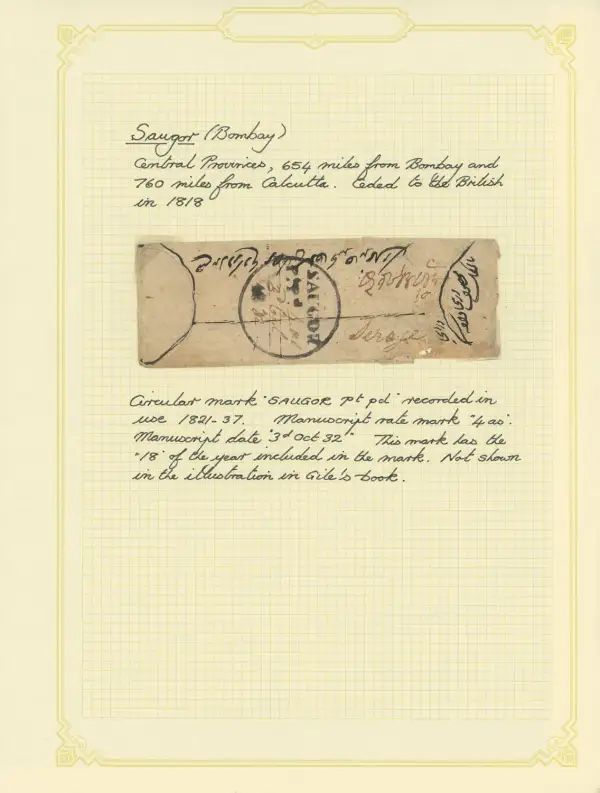 Saugor (Bombay)
Central Provinces, 654 miles from Bombay and
760 miles from Calcutta. Ceded to the British
in 1818
SAUGOR
Seroge
Circular mark 'SAUGOR pt pd' recorded in
use 1821-37. Manuscript rate mark "4 as'.
Manuscript date "3d Oct 32" This mark has the
"18' of the year included in the mark. Not shown
in the illustration in Gile's book.